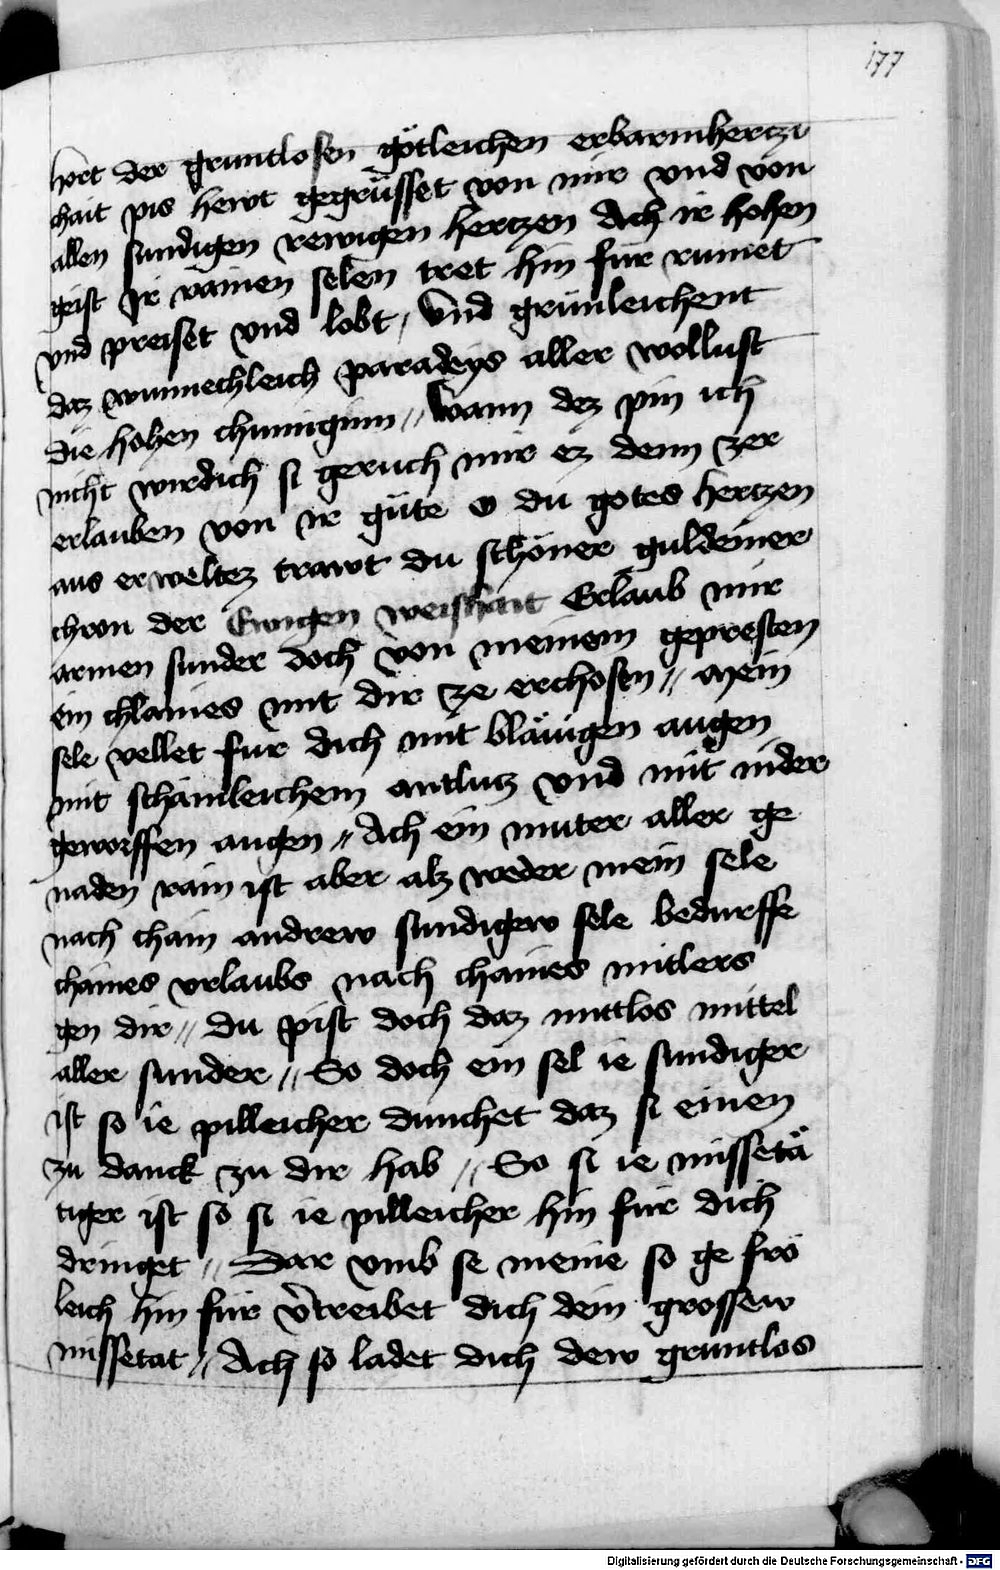 177
hort der gruntlosen götleichen erbarmhertzi
chait pis hewt gegrüsset von mir vnd von
allen sundigen rewigen hertzen Ach ir hohen
geist Ir rainen selen tret hin für rumet
vnd preiset vnd lobt / Vnd grünleichent
daz wunnechleich paradeys aller wollust
die hohen chuniginn // wann dez pin ich
nicht wirdich si geruch mir ez denn zer
erlauben von ir güte O du gotes hertzen
aus erweltez trawt du schöner guldeiner
chron der Ewigen weishait Erlaub mir
armen sunder doch von meinem gepresten
ein chlaines mit dir ze erchosen // Mein
sele vellet fur dich mit bläugen augen
mit schämleichem antlutz vnd mit nider
geworffen augen // Ach ein muter aller ge
naden rain ist aber alz weder mein sele
nach chain andrew sundigew sele bedurffe
chaines vrlaubs nach chaines mitlers
gen dir // du pist doch daz mittlos mittel
aller sunder // So doch ein sel ie sundiger
ist so ie pilleicher dunchet daz si einen
zu danck zu dir hab // So si ie missetä
tiger ist so si ie pilleicher hin für dich
dringet // Dar vmb se meine so ge frö
leich hin für v̄treibet dich dein grossew
missetat // Ach so ladet dich dew gruntlos
Digitalisierung gefördert durch die Deutsche Forschungsgemeinschaft - DFG